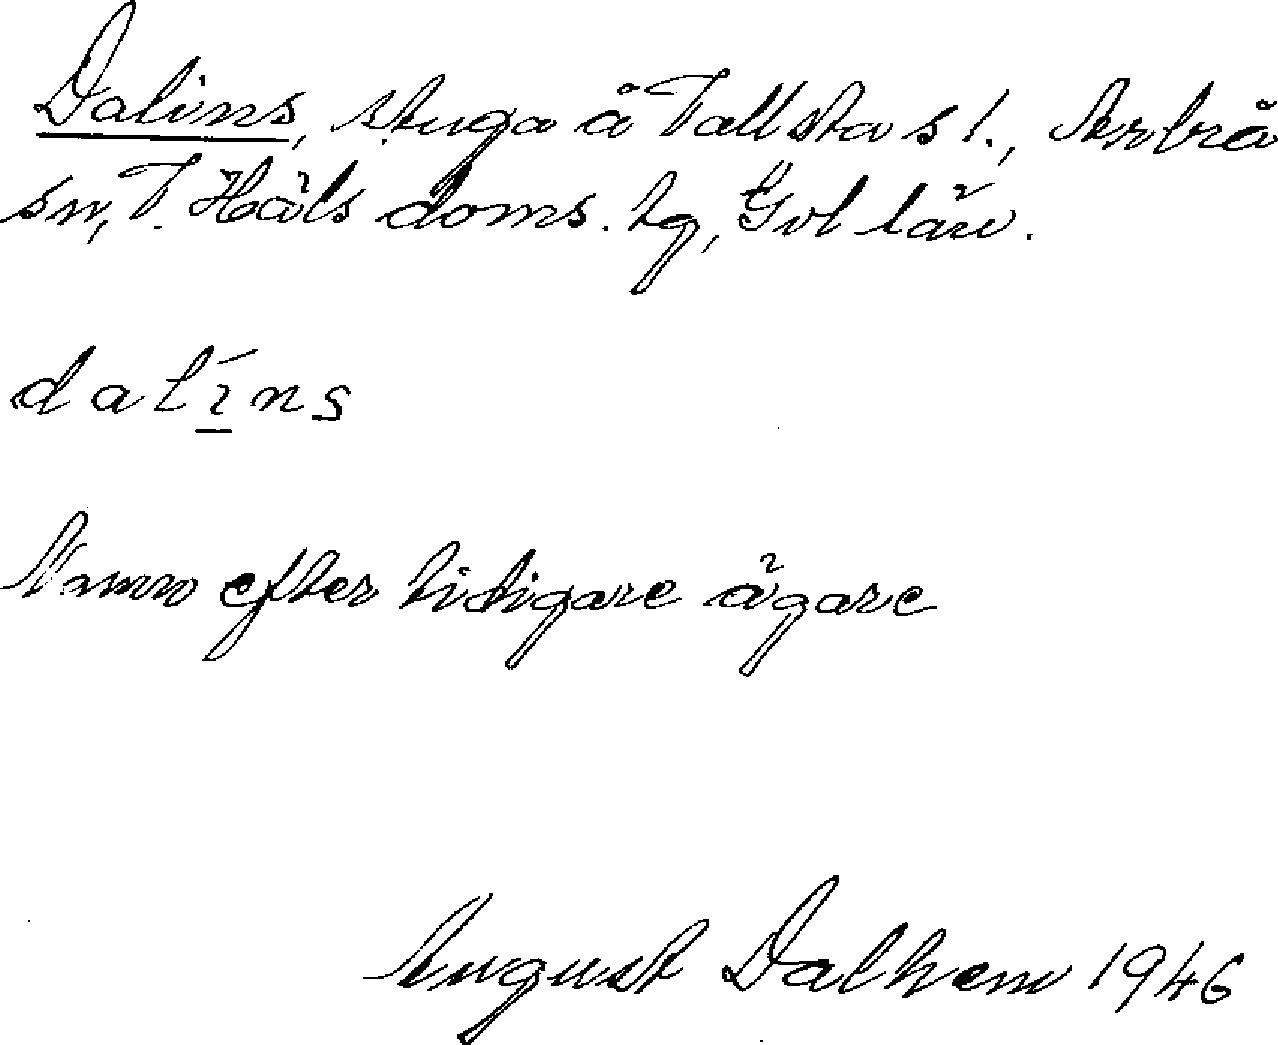 Dalins, stuga å Tallsta s!., Arbrå
sn, V. Häls doms. tg, Gvl län.
dalíns
Namn efter tidigare ägare
August Dalhem 1946